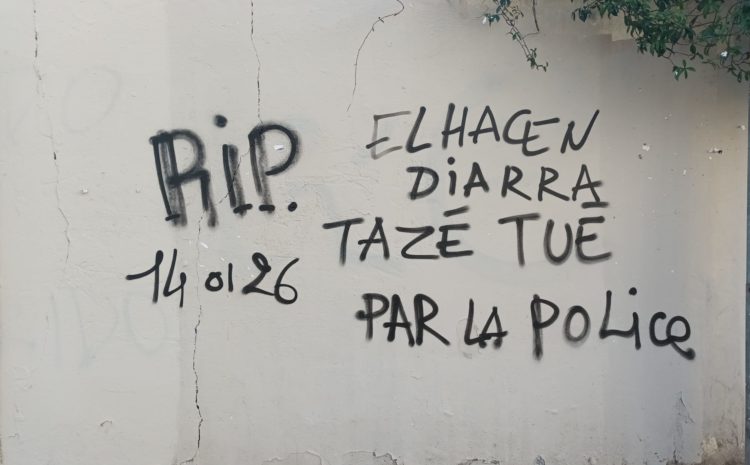 RIP.
14 01 26
EL HACEN
DIARRA
TAZÉ TUÉ
PAR LA POLICE